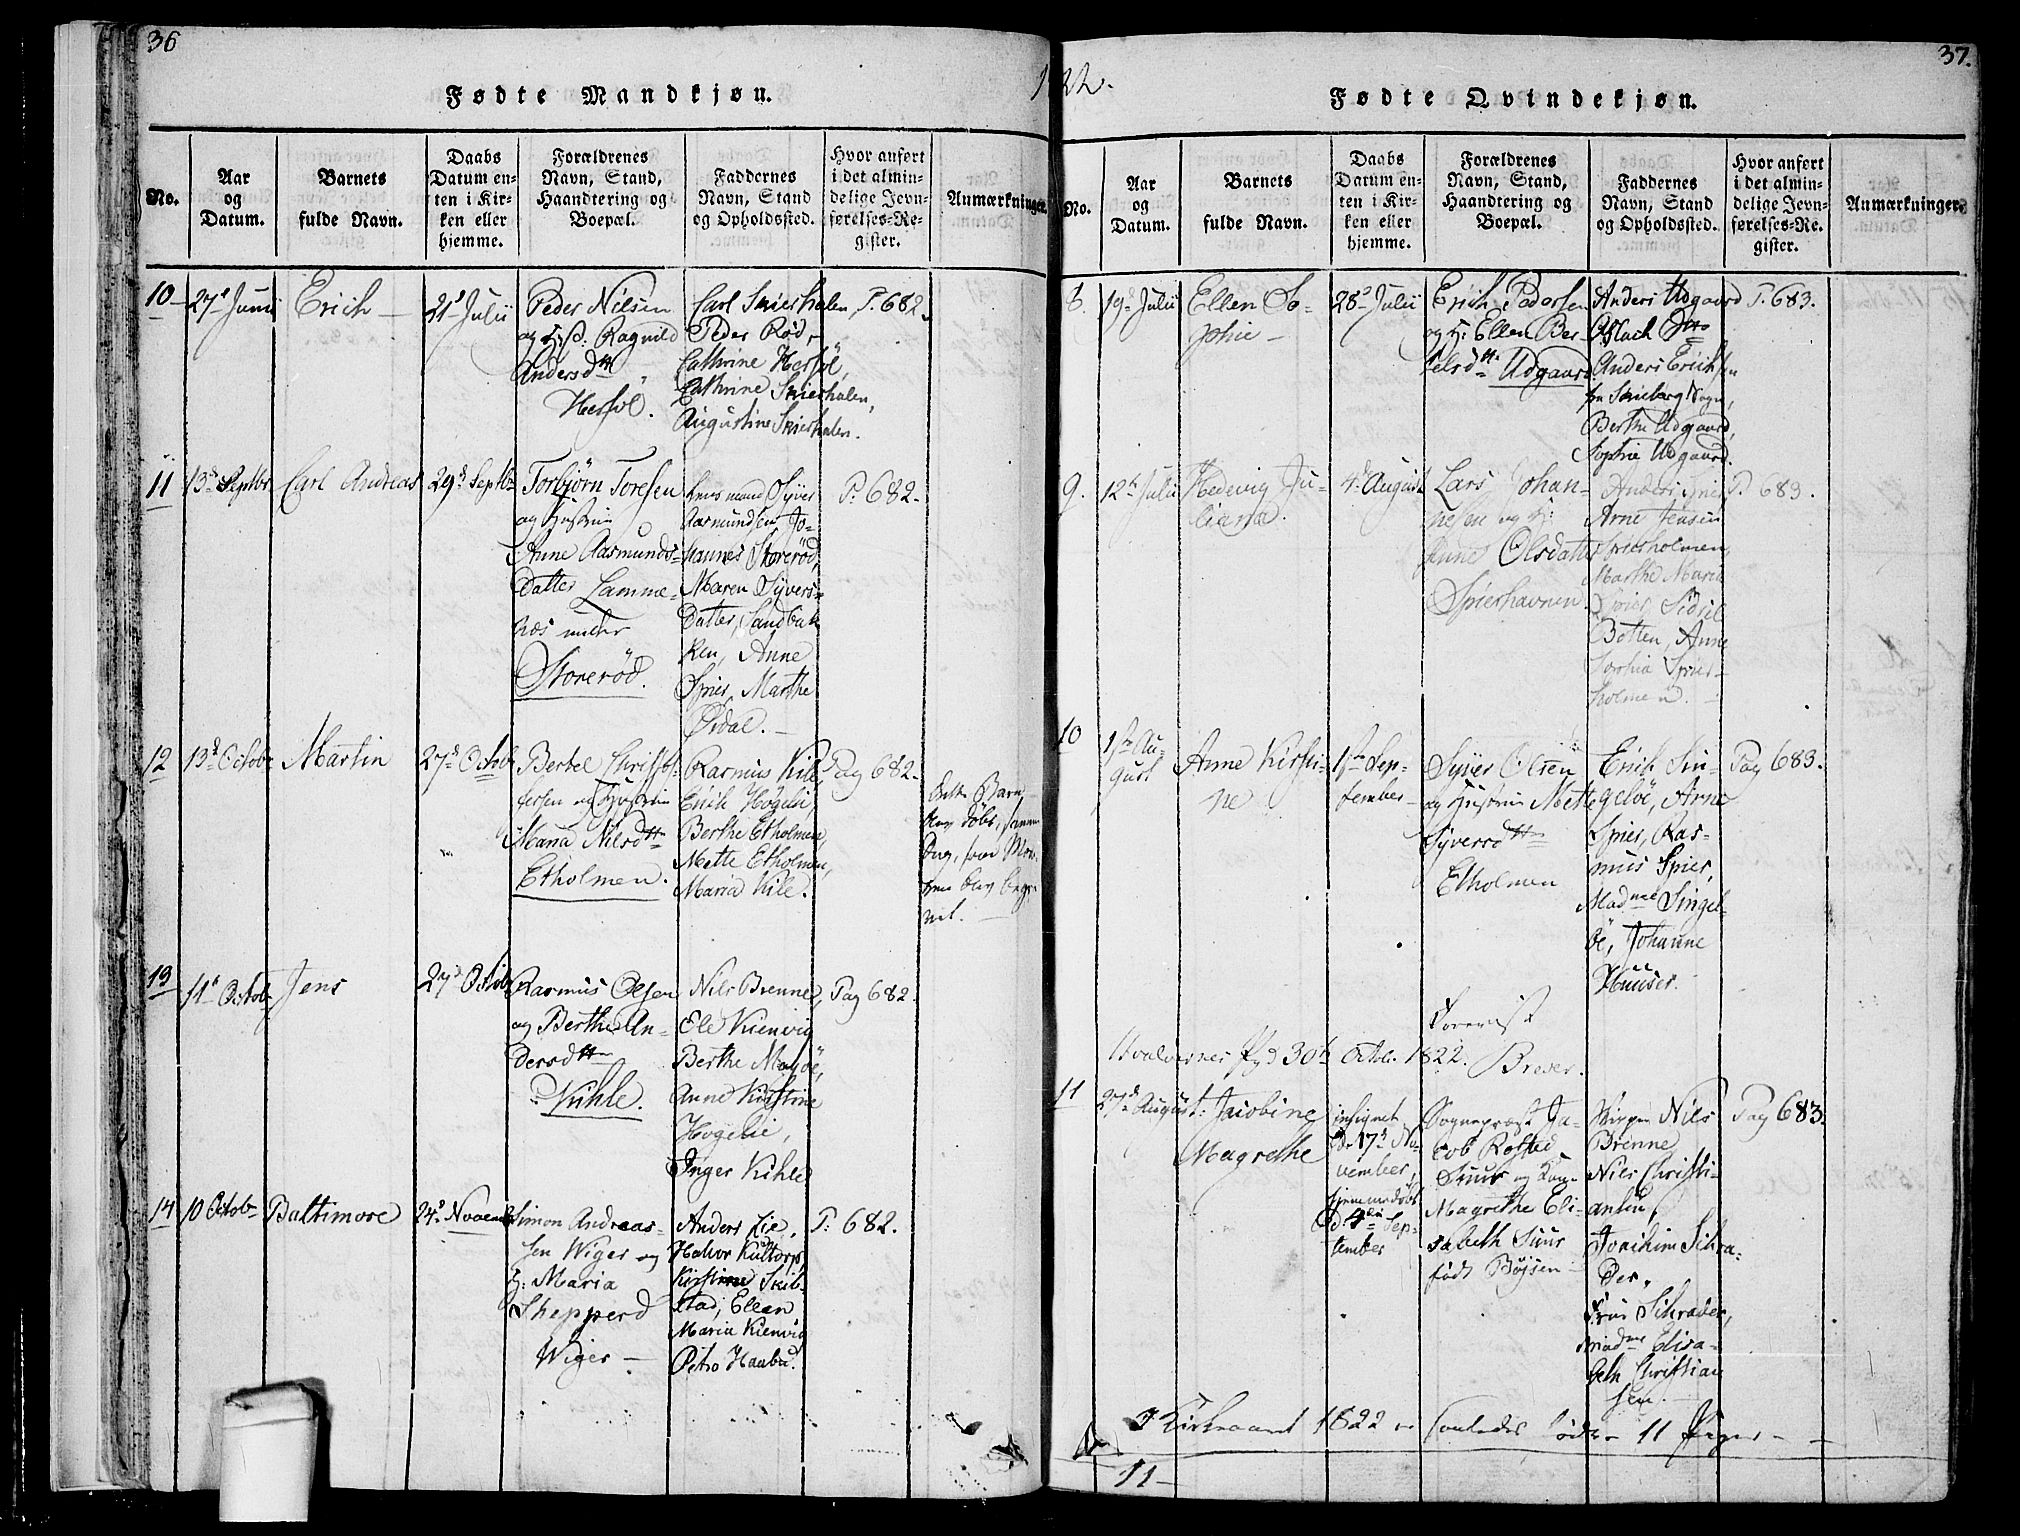 36
Fødte Mandkjøn.
No.
Aar
og
Datum.
Barnets
fulde Navn.
Daabs
Datum en-
ten i Kir-
ken eller
hjemme.
Forældrenes
Navn, Stand,
Haandtering og
Boepæl.
Faddernes
Navn, Stand
og Opholdssted.
Hvor anført
i det almin-
delige Jevn-
førelses-Re-
gister.
Anmærkninger.
10
27d Junii
Erich
21d Julii
Peder Nilsen
og H: Ragnild
Andersdtt
Hersöl.
Carl Skierhalen,
Peder Rød,
Cathrine Hersöl,
Cathrine Skierhalen,
Augustine Skierhalen.
P. 682.
11
13d Septbr
Carl Andreas
29d Septbr
Torbjørn Toresen
og Hustru
Anne Aasmunds-
Datter Lamme-
næs under
Storerød.
Lensmand Syver
Aasmundsen, Jo-
hannes Storerød,
Maren Syvers-
Datter, Sandbak
ken, Anne
Spier, Marthe
Ørdal.
P. 682.
12
13d Octobr
Martin
27d Octob
Bertel Christof-
fersen og Hustru
Maria Nilsdtt
Etholmen.
Rasmus Kile,
Erich Høgelii
Berthe Etholmen,
Mette Etholmen,
Maria Kile.
Pag 682.
Dette Barn
blev døbt, samme
Dag, som Mo-
13
11d Octob
Jens
27d Octob
Rasmus Olsen
og Berthe An-
dersdtt
Kihle.
Nils Brenne,
Ole Kienvig
Berthe Magöe,
Anne Kirstine
Høgelie,
Inger Kihle
Pag 682.
14
10 Octob
Baltimore
24d Novemb
Simon Andreas-
sen Wiger og
H: Maria
Shepperd
Wiger
Anders Lie,
Halvor Kultorp,
Kirstine Skib-
stad, Ellen
Maria Kienvig
Petro Haabu.
P: 682.
1822.
37.
Fødte Qvindekjøn.
No.
Aar
og
Datum.
Barnets
fulde Navn.
Daabs
Datum en-
ten i Kir-
ken eller
hjemme.
Forældrenes
Navn, Stand,
Haandtering og
Boepæl.
Faddernes
Navn, Stand
og Opholdssted.
Hvor anført
i det almin-
delige Jevn-
førelses-Re-
gister.
Anmærkninger.
8.
19d Julii
Ellen So-
phie
28d Julii
Erich Pedersen
og H: Ellen Ber-
telsdtt Udgaard
Anders Udgaard
Aslach
Anders Erichsen
fra Skieberg Sogn,
Berthe Udgaard,
Sophie Udgaard.
P. 683.
9.
12d Julii
Hedevig Ju-
liana.
4d August
Lars Johan-
nesen og H:
Anne Olsdatter
Spierhavnen.
Anders Spier,
Arne Jensen
Spierholmen,
Marthe Maria
Spier, Sidsil
Botten, Anne
Sophia Spier-
holmen.
P. 683.
10
1ste Au-
gust
Anne Kirsti-
ne
1ste Sep-
tember
Syver Olsen
og Hustru Mette
Syversdtt
Etholmen
Erich Sin-
geløe, Arne
Spier, Ras-
mus Spier,
Madme Singel-
öe, Johanne
Huuser.
Pag 683.
Foreviist
Hvaløernes Pgd 30te Octbr. 1822. Breser.
11
27d August:
Jacobine
Magrethe
insignet
d. 17d No-
vember,
hjemmedöbt
d. 4de Sep-
tember
Sognepræst Ja-
cob Rosted
Suur og Kone
Magrethe Eli-
sabeth Suur
født Bøjsen
Nils
Brenne
Nils Christi-
ansen,
Joachim Schra-
der,
Frue Schrader,
Madme Elisa-
beth Christian
sen.
Pag 683.
I Kirkeaaret 1822 er saaledes fødte 11 Piger
11